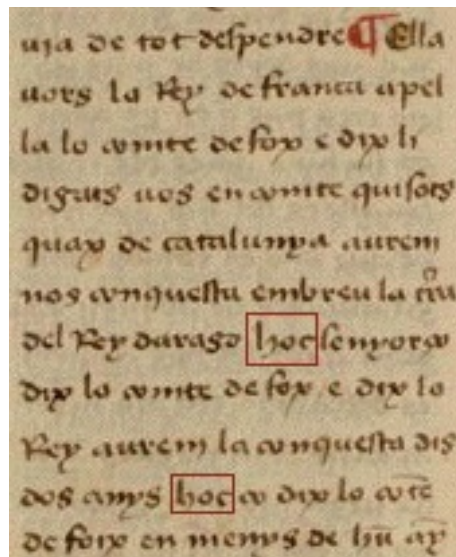 uia de tot despendre ¶ Ella
uors lo Rey de franca apel
la lo comte de fox e dix li
digats uos en comte qui sots
quax de catalunya aurem
nos conquesta em breu la tra
del Rey darago hoc senyor co
dix lo comte de fox, e dix lo
Rey aurem la conquesta dis
dos anys hoc co dix lo cote
de foix en menys de hu ay